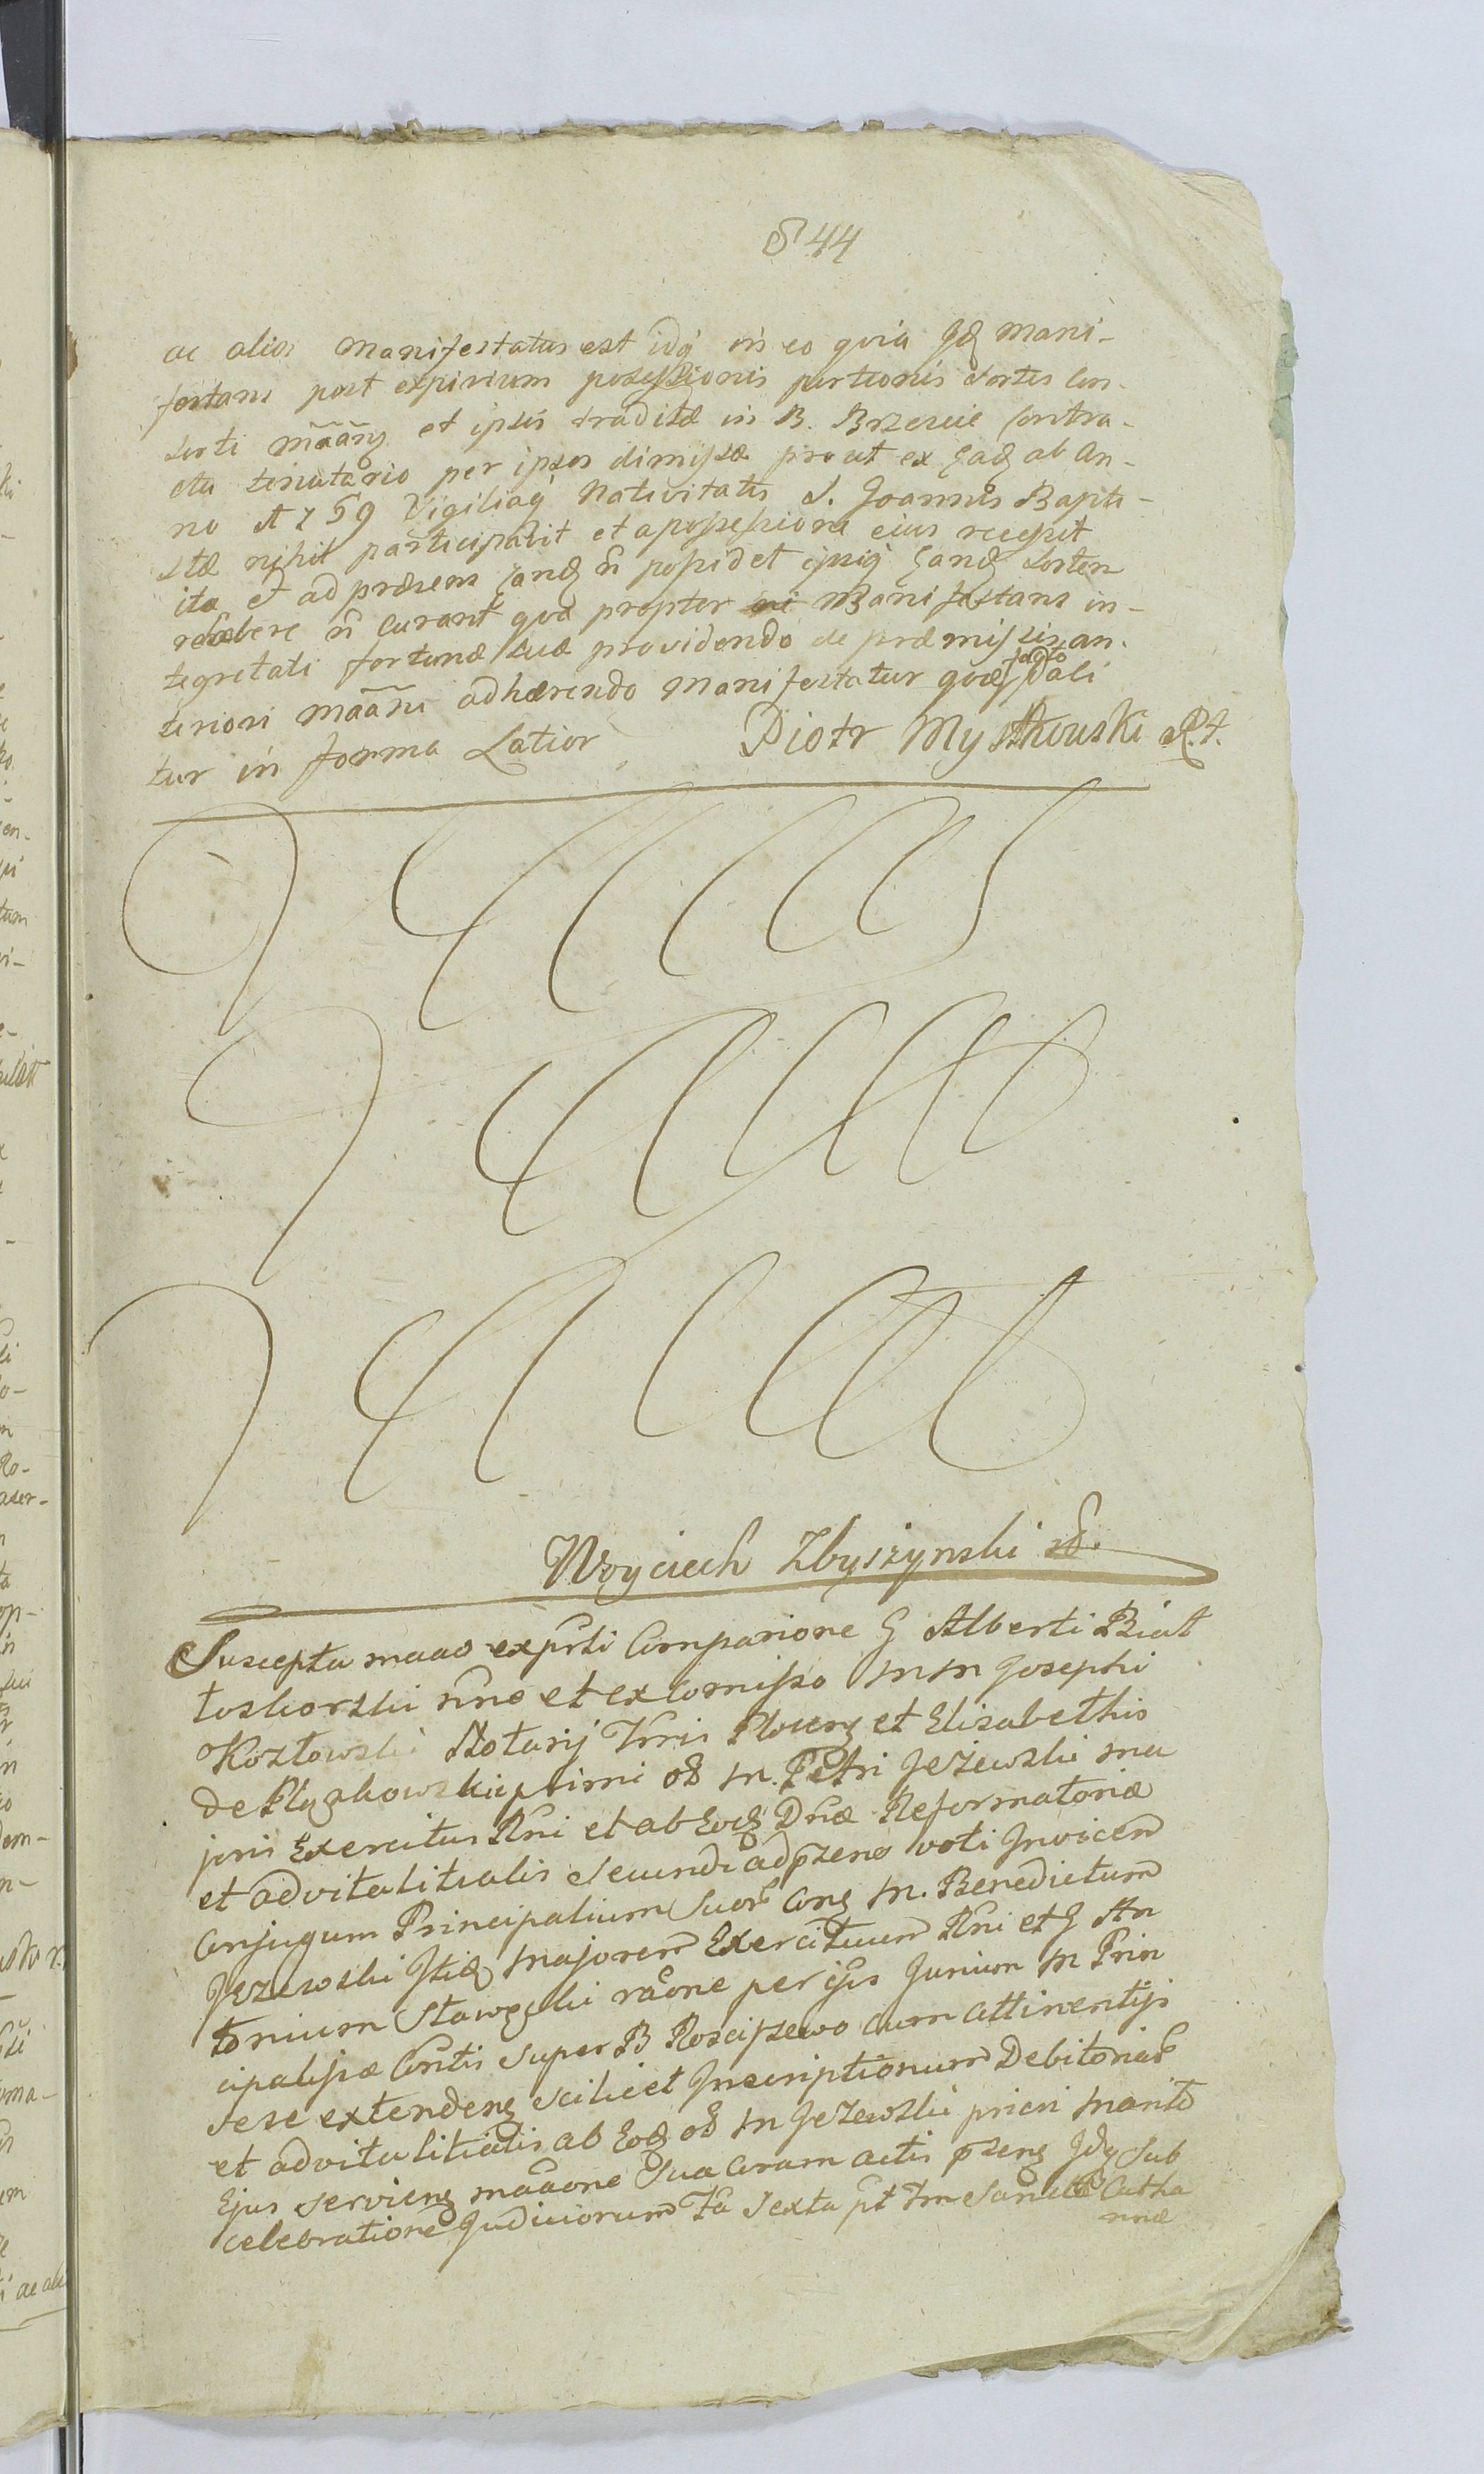 544
ac alias Manifestatus est idq in eo quia Idz Mani-
festans post expirium possessionis portionis sortis Con-
sorti mãanz et ipsis traditæ in B. Brzescie Contra-
ctu tenutario per ipsos dimissæ prout ex Eadz ab An-
no 1759 Vigiliaq Nativitatis S. Joannis Bapti-
stæ nihil participavit et a possessione eius recessit
ita et ad præsens Eandz ñ possidet ipsiq Eandz Sortem
ñ curant qua propter Manifestans in-
tegritati fortunæ suæ providendo de præmissis an-
teriori mãani adhærendo Manifestatur
tur in forma Latior Piotr Mystkouski
Woyciech Zbyszynski
Suscepta maao exprti Comparione G Alberti Biat
toskorski nñe et ex Comisso M M Josephi
Kozłowski Notarij Trris Plocenz et Elisabethis
de primi oz M. Petri Jeżewski ma
joris Exercitus Rñi et ab Eodz Dñæ Reformatoriæ
et advitalitialis Secundi ad pzens voti Invicem
Conjugum Principalium Suor Conz M. Benedictum
Jezewski Itidz Majorem Exercituum Rñi et G An
tonium raõne per Junium M Prin
Contis super B Rosciszewo cum attinentijs
sese extendenz scilicet Inscriptionum Debitoriar
et advitalitialis ab Eodz oz M Jezewski priori Marito
Ejus servienz maãone Sua Coram actis pzenz Idq Sub
celebratione Judiciorum Fa Sexta pt Fm Sanctæ Catha
rinæ